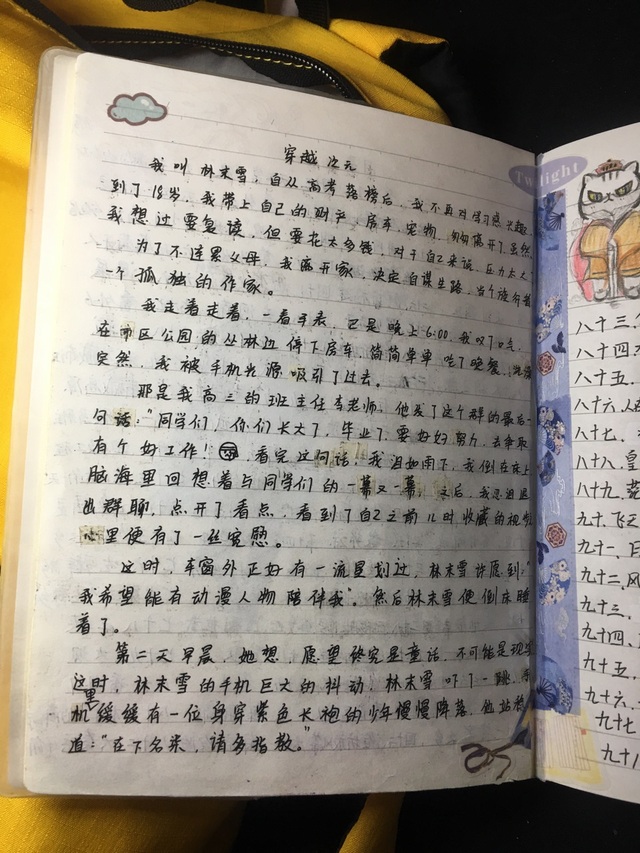 穿越次元
我叫林末雪，自从高考落榜后，我不再对学习感兴趣
到了18岁，我带上自己的财产，房车，宠物，匆匆离开了，虽然
我想过要复读，但要花太多钱，对于自己来说，压力太大了
为了不连累父母，我离开家，决定自谋生路，当个旅行
一个孤独的作家。
我走着走着，一看手表，已是晚上6:00，我叹了口气，
在市区公园的丛林边停下房车，简简单单吃了晚餐，
突然，我被手机光源吸引了过去。
那是我高三的班主任李老师，他发了这个群的最后一
句话："同学们，你们长大了，毕业了，要好好努力，去争取
有个好工作！看完这句话，我泪如雨下，我倒在床上
脑海里回想着与同学们的一幕又一幕，之后，我忍泪退
出群聊，点开了看点，看到了自己之前儿时收藏的视频
心里便有了一丝宽慰。
这时，车窗外正好有一流星划过，林末雪许愿到："
我希望能有动漫人物陪伴我"。然后林末雪便倒床睡
着了。
第二天早晨，她想，愿望终究是童话，不可能是现实
这时，林末雪的手机巨大的抖动，林末雪吓了一跳，
黑
机缓缓有一位身穿紫色长袍的少年慢慢降落，他站稳
道："在下名米，请多指教。"
Twilight
八十三
八十四
八十五、
八十六、
八十七、
八十八、皇
八十九、
九十、飞
九十一、
九十二、风
九十三、
九十四、
九十五、
九十六、
九十七
九十八